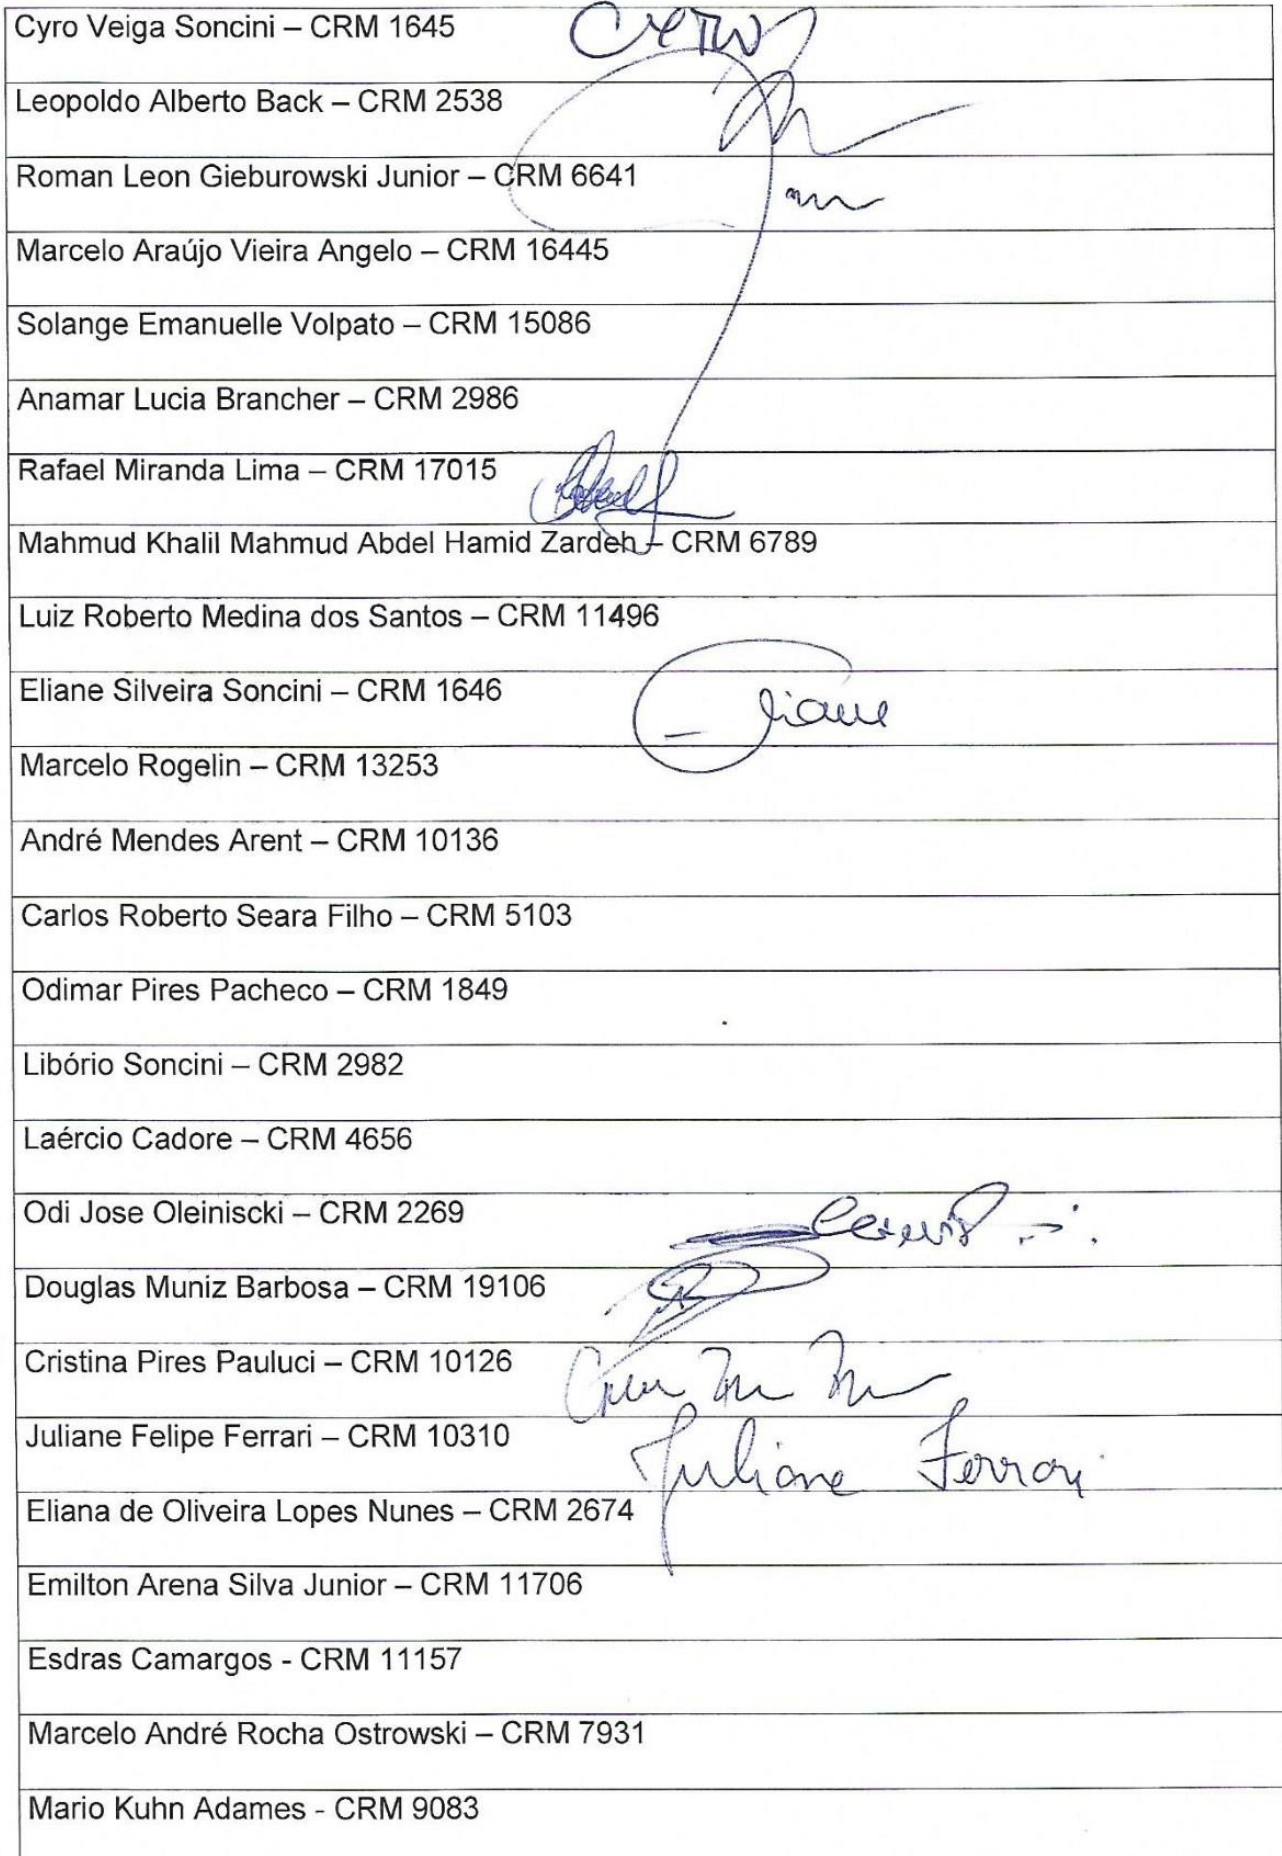 Cyro Veiga Soncini – CRM 1645 Cyro
Leopoldo Alberto Back – CRM 2538
Roman Leon Gieburowski Junior – CRM 6641
Marcelo Araújo Vieira Angelo – CRM 16445
Solange Emanuelle Volpato – CRM 15086
Anamar Lucia Brancher – CRM 2986
Rafael Miranda Lima – CRM 17015
Mahmud Khalil Mahmud Abdel Hamid Zardeh – CRM 6789
Luiz Roberto Medina dos Santos – CRM 11496
Eliane Silveira Soncini – CRM 1646 Eliane
Marcelo Rogelin – CRM 13253
André Mendes Arent – CRM 10136
Carlos Roberto Seara Filho – CRM 5103
Odimar Pires Pacheco – CRM 1849
Libório Soncini – CRM 2982
Laércio Cadore – CRM 4656
Odi Jose Oleiniscki – CRM 2269
Douglas Muniz Barbosa – CRM 19106
Cristina Pires Pauluci – CRM 10126
Juliane Felipe Ferrari – CRM 10310 Juliane Ferrari
Eliana de Oliveira Lopes Nunes – CRM 2674
Emilton Arena Silva Junior – CRM 11706
Esdras Camargos - CRM 11157
Marcelo André Rocha Ostrowski – CRM 7931
Mario Kuhn Adames - CRM 9083